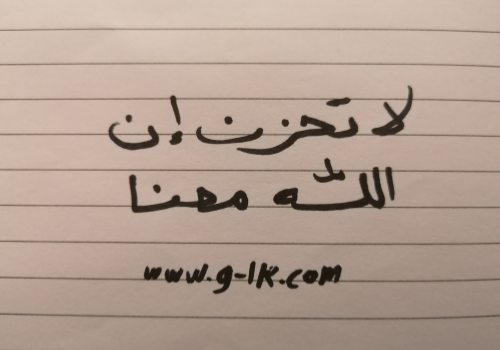 لا تحزن إن
الله معنا
www.g-lk.com